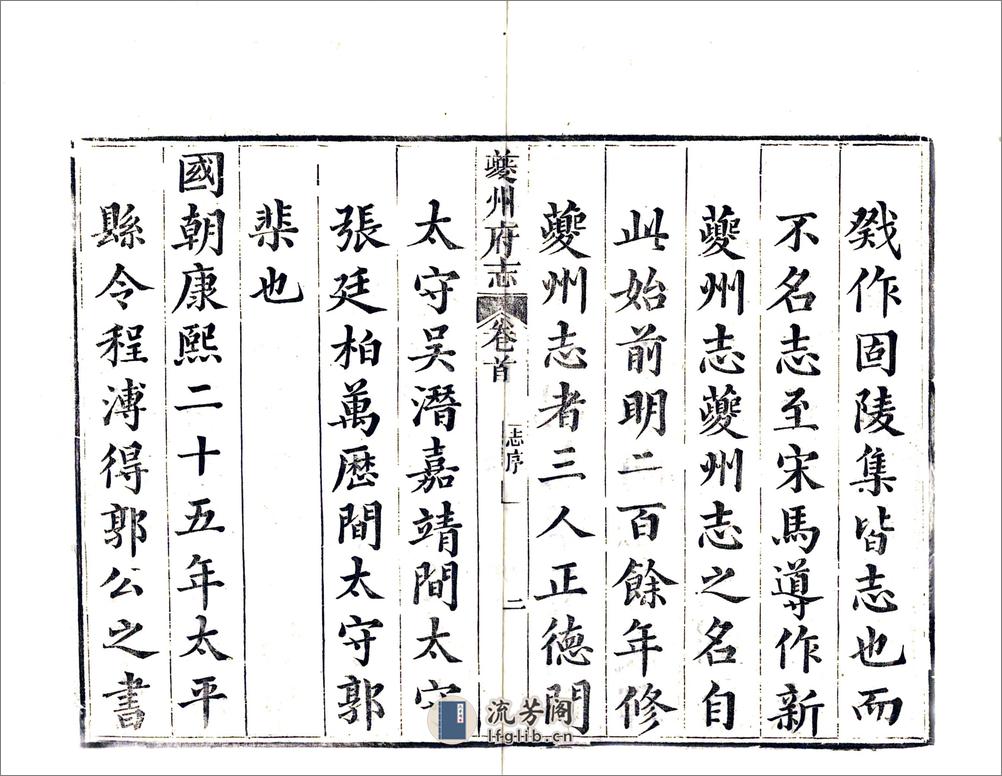 戣作固陵集皆志也而
不名志至宋馬導作新
夔州志夔州志之名自
此始前明二百餘年修
夔州志者三人正德間
夔州府志 卷首 志序 二
太守吴潛嘉靖間太守
張廷柏萬曆間太守郭
棐也
國朝康熙二十五年太平
縣令程溥得郭公之書
流芳阁
lfglib.cn